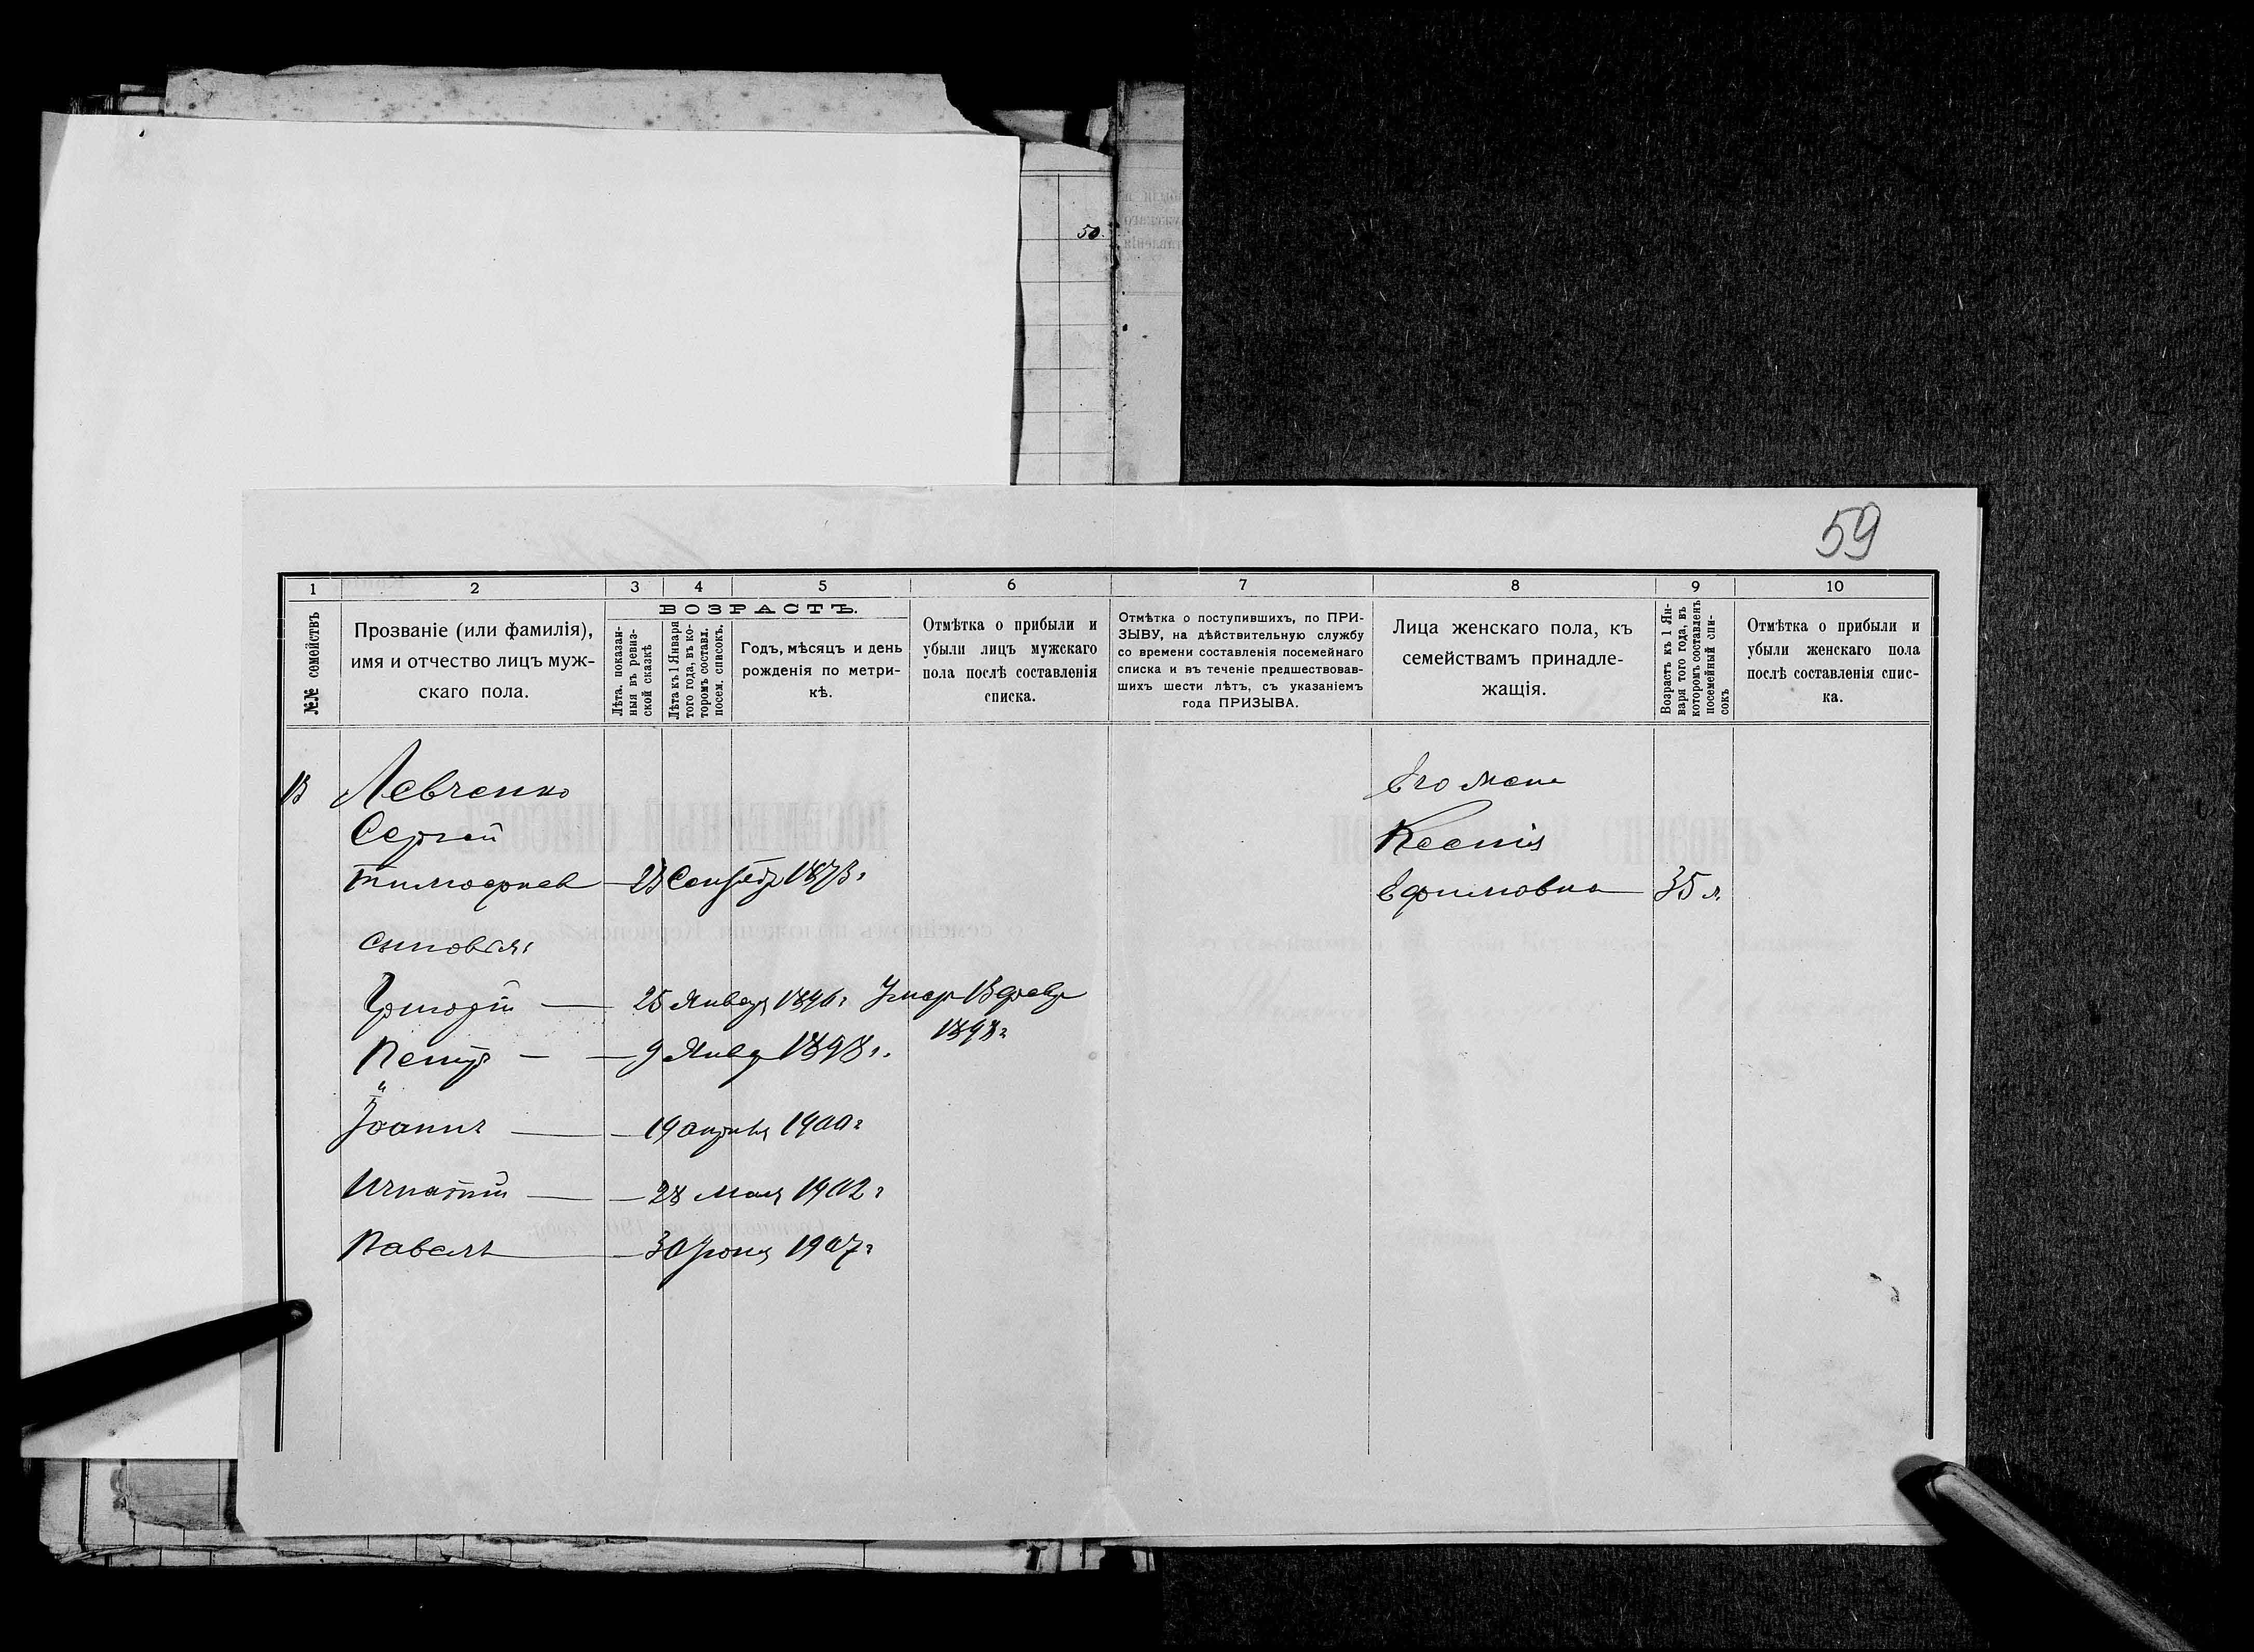 50.
59
1 2 3 4 5 6 7 8 9 10
№№ семействъ
Прозваніе (или фамилія),
имя и отчество лицъ муж-
скаго пола.
ВОЗРАСТЪ.
Лѣта, показан-
ныя въ ревиз-
ской сказкѣ
Лѣта къ 1 Января
того года, въ ко-
торомъ составл.
посем. списокъ.
Годъ, мѣсяцъ и день
рожденія по метри-
кѣ.
Отмѣтка о прибыли и
убыли лицъ мужскаго
пола послѣ составленія
списка.
Отмѣтка о поступившихъ, по ПРИ-
ЗЫВУ, на дѣйствительную службу
со времени составленія посемейнаго
списка и въ теченіе предшествовав-
шихъ шести лѣтъ, съ указаніемъ
года ПРИЗЫВА.
Лица женскаго пола, къ
семействамъ принадле-
жащія.
Возрастъ къ 1 Ян-
варя того года, въ
которомъ составленъ
посемейный спи-
сокъ
Отмѣтка о прибыли и
убыли женскаго пола
послѣ составленія спис-
ка.
13 Левченко Его жена
Сергей Ксенія
Тимофеев — 23 Сентябр 1873 г Ефимовна — 35 л.
сыновья:
Григорій — 25 Января 1896 г Умер 13 февр
1898 г
Петр — — 9 Январ 1898 г.
Іоанн — — 19 апреля 1900 г
Игнатій — — 28 Мая 1902 г
Павелъ — — 30 Іюня 1907 г